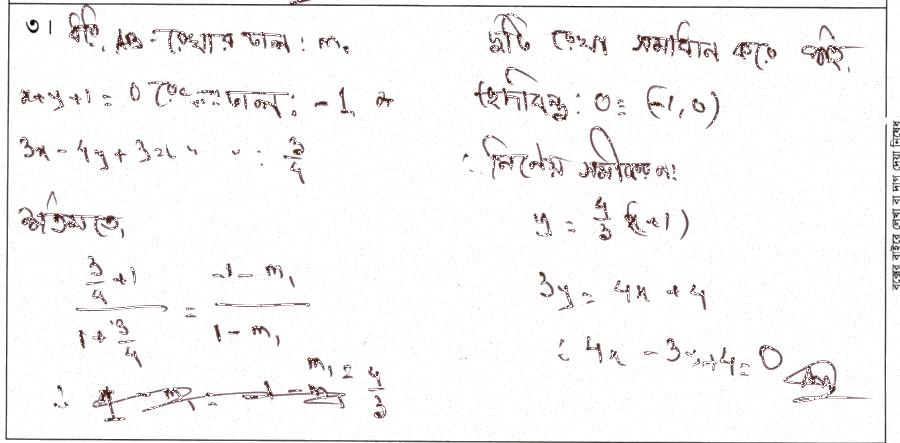 ৩। ধরি, AB রেখার ঢাল : m₁
x+y+1 = 0 রেখার ঢাল : -1
3x - 4y + 3 = 0 " " : 3/4
প্রশ্নমতে,
(3/4 + 1)/(1 + 3/4) = (-1 - m₁)/(1 - m₁)
∴ m₁ = 4/3
দুটি রেখা সমাধান করে পাই,
ছেদবিন্দু : O ≡ (-1, 0)
∴ নির্ণেয় সমীকরণ:
y = 4/3 (x+1)
3y = 4x + 4
∴ 4x - 3y + 4 = 0
বক্সের বাইরে লেখা বা দাগ দেয়া নিষেধ